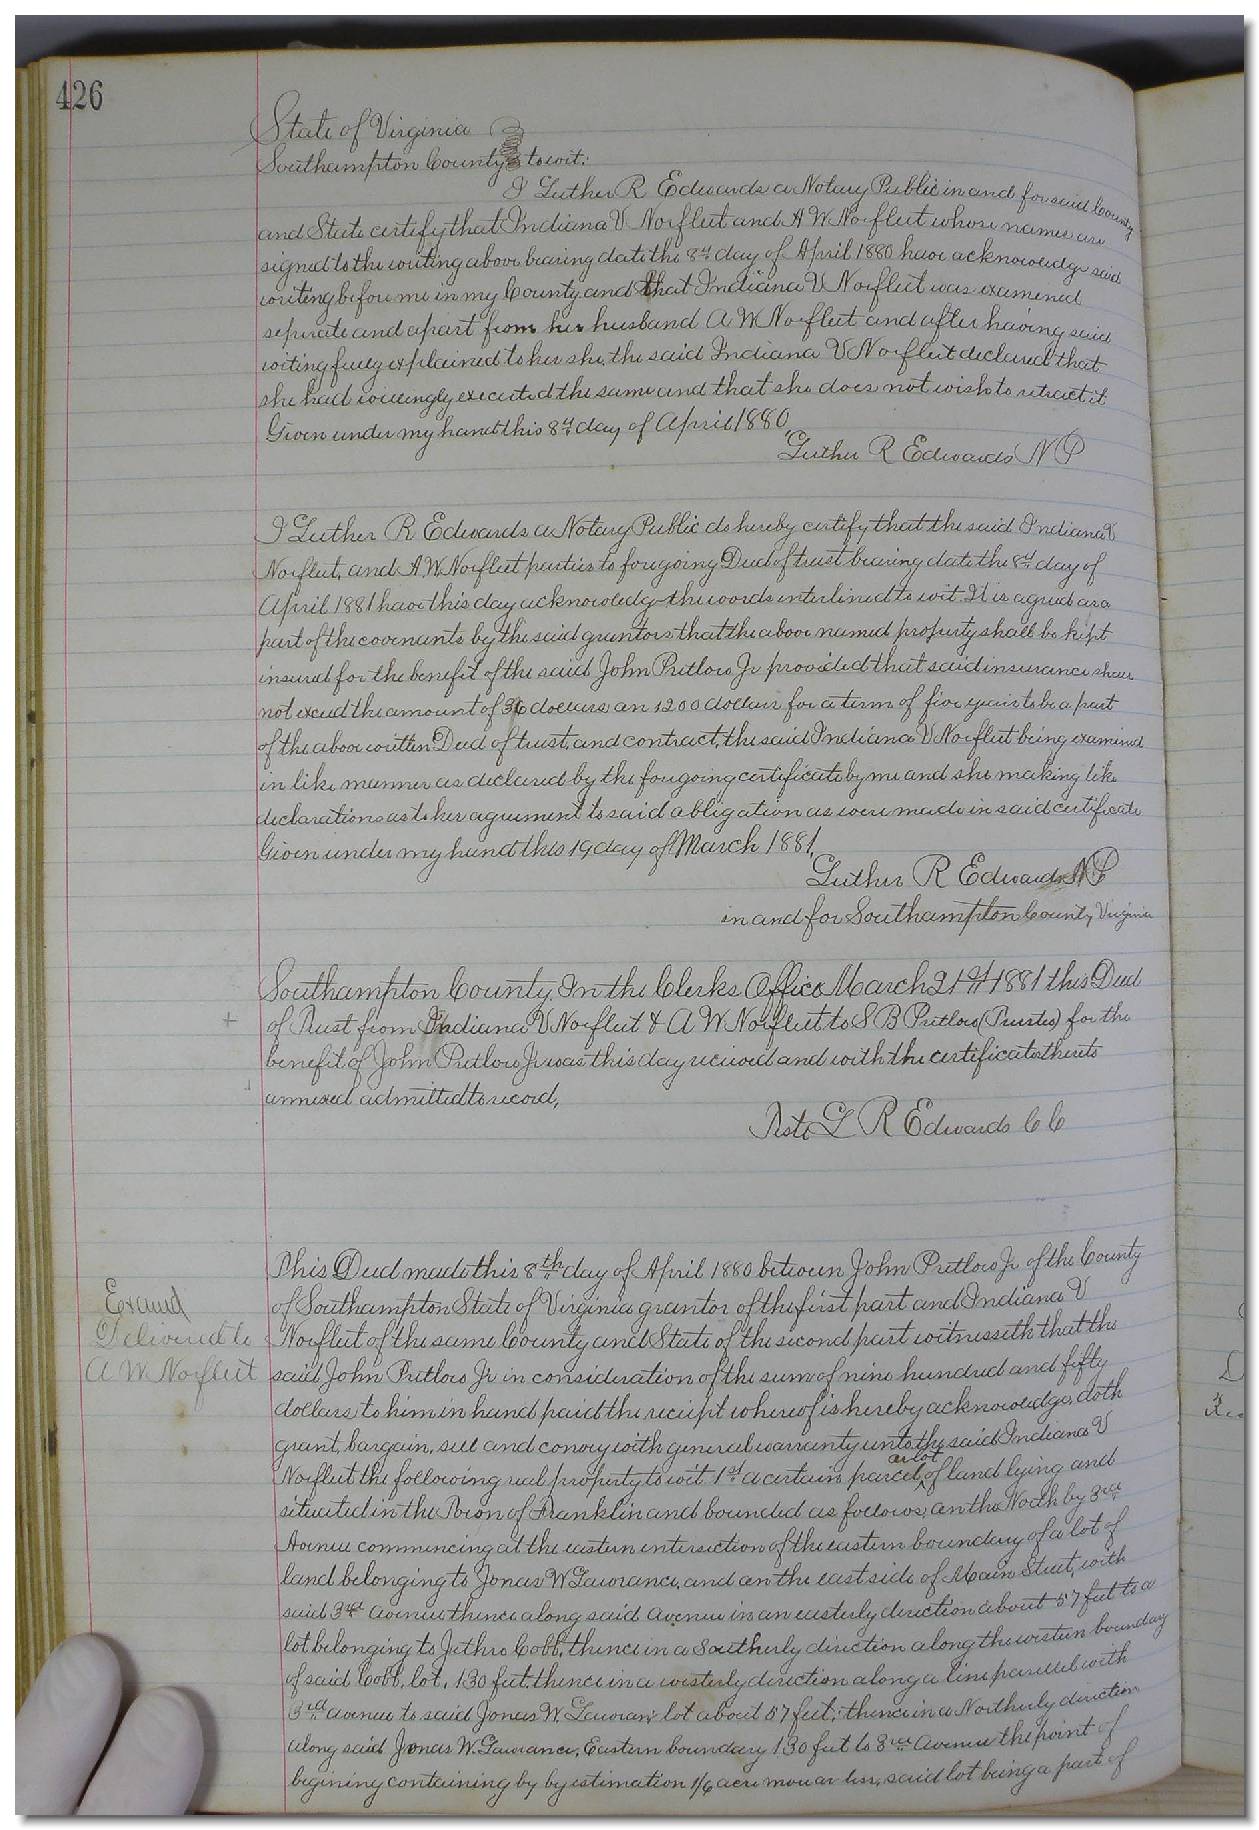 426
State of Virginia
Southampton County to wit:
I Luther R Edwards a Notary Public in and for said County
and State certify that Indiana V Norfleet and A W Norfleet whose names are
signed to the writing above bearing date the 8th day of April 1880 have acknowledge said
writing before me in my County and that Indiana V Norfleet was examened
seperate and apart from her husband A W Norfleet and after having said
writing fully explained to her she the said Indiana V Norfleet declared that
she had willingly executed the same and that she does not wish to retract it
Given under my hand this 8th day of April 1880,
Luther R Edwards N P
I Luther R Edwards a Notary Public do hereby certify that the said Indiana V
Norfleet, and A W Norfleet parties to foregoing Deed of trust bearing date the 8th day of
April 1881 have this day acknowledge the words interlined to wit. It is agreed as a
part of the covenants by the said grantors that the above named property shall be kept
insured for the benefit of the said John Pretlow Jr provided that said insurance shall
not exceed the amount of 36 dollars on 1200 dollars for a term of five years to be a part
of the above written Deed of trust, and contract, the said Indiana V Norfleet being examined
in like manner as declared by the foregoing certificate by me and she making like
declarations as to her agreement to said obligation as were made in said certificate
Given under my hand this 19 day of March 1881,
Luther R Edwards N P
in and for Southampton County, Virginia
Southampton County, In the Clerks Office March 21st 1881 this Deed
of Trust from Indiana V Norfleet & A W Norfleet to S B Pretlow (Trustee) for the
benefit of John Pretlow Jr was this day recieved and with the certificate thereto
annexed admitted to record,
Teste L R Edwards C C
This Deed made this 8th day of April 1880 between John Pretlow Jr of the County
of Southampton State of Virginia grantor of the first part and Indiana V
Norfleet of the same County and State of the second part witnesseth that the
said John Pretlow Jr in consideration of the sum of nine hundred and fifty
dollars to him in hand paid the reciept whereof is hereby acknowledge, doth
grant, bargain, sell and convey with general warranty unto the said Indiana V
Norfleet the following real property to wit 1st a certain parcel or lot of land lying and
situated in the Town of Franklin and bounded as follows, on the North by 3rd
Avenue commencing at the eastern intersection of the eastern boundary of a lot of
land belonging to Jonas W Lawrance, and on the east side of Main Street, with
said 3rd avenue thence along said avenue in an easterly direction about 57 feet to a
lot belonging to Jethro Cobb, thence in a Southerly direction along the western boundary
of said Cobb, lot, 130 feet, thence in a westerly direction along a line parallel with
3rd avenue to said Jonas W. Lawran lot about 57 feet; thence in a Northerly direction
along said Jonas W. Lawrance, Eastern boundary 130 feet to 3rd Avenue the point of
begining containing by by estimation 1/6 acre more or less, said lot being a part of
Examd
Delivered to
A W Norfleet